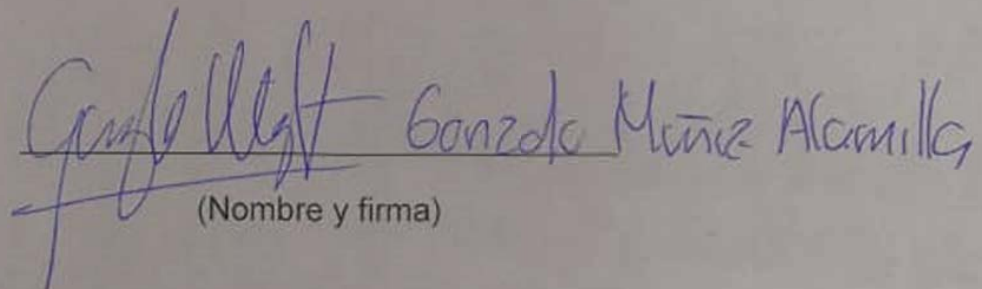 Gonzalo Muñoz Alamilla
(Nombre y firma)